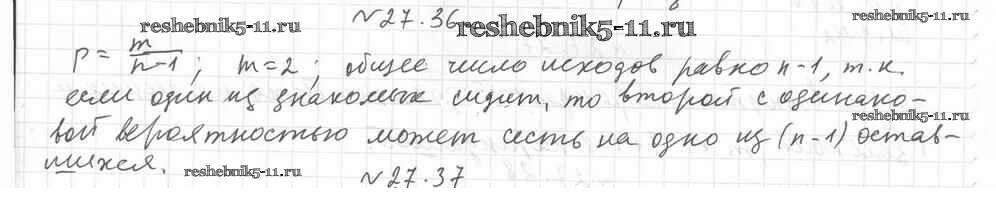 №27.36
reshebnik5-11.ru
reshebnik5-11.ru
reshebnik5-11.ru
p = m/(n-1); m=2; общее число исходов равно n-1, т.к.
если один из знакомых сидит, то второй с одинако-
вой вероятностью может сесть на одно из (n-1) остав-
reshebnik5-11.ru
шихся.
reshebnik5-11.ru
№27.37